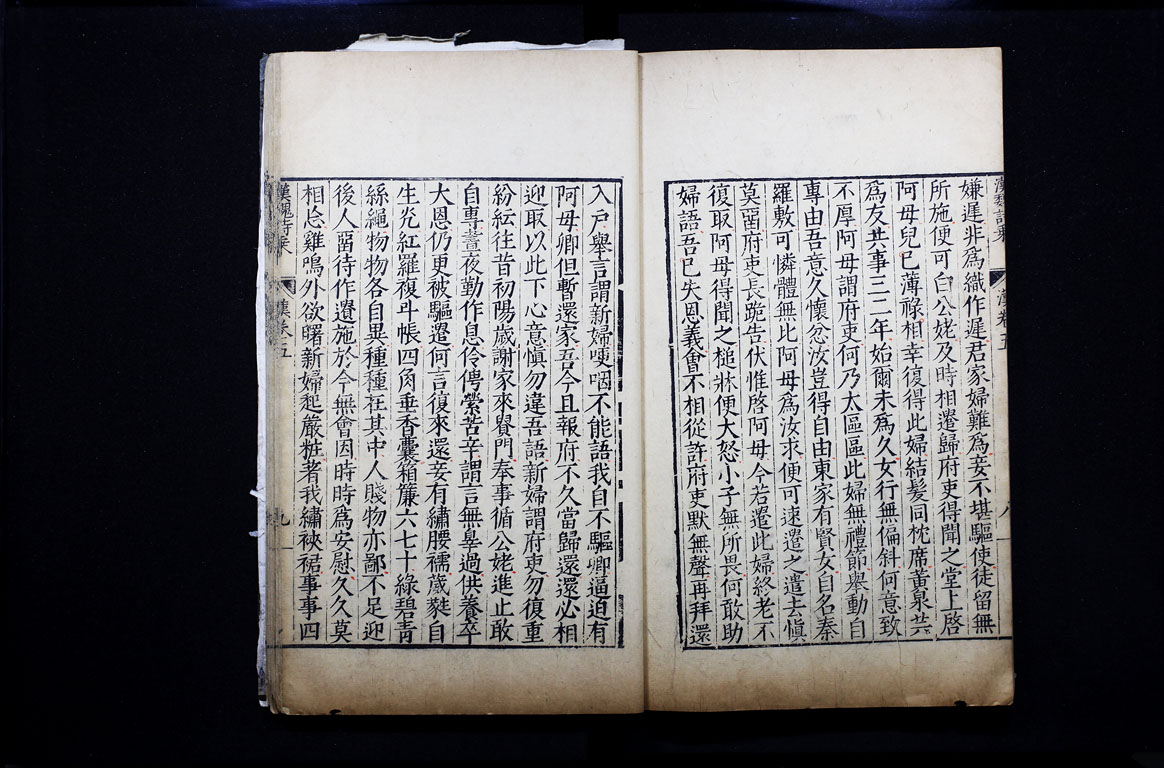 漢魏詩乘　漢卷五　八
嫌遲非爲織作遲君家婦難爲妾不堪驅使徒留無
所施便可白公姥及時相遣歸府吏得聞之堂上啓
阿母兒已薄祿相幸復得此婦結髮同枕席黃泉共
爲友共事三二年始爾未爲久女行無偏斜何意致
不厚阿母謂府吏何乃太區區此婦無禮節舉動自
專由吾意久懷忿汝豈得自由東家有賢女自名秦
羅敷可憐體無比阿母爲汝求便可速遣之遣去愼
莫畱府吏長跪告伏惟啓阿母今若遣此婦終老不
復取阿母得聞之槌牀便大怒小子無所畏何敢助
婦語吾已失恩義會不相從許府吏默無聲再拜還
入戶舉言謂新婦哽咽不能語我自不驅卿逼迫有
阿母卿但暫還家吾今且報府不久當歸還還必相
迎取以此下心意愼勿違吾語新婦謂府吏勿復重
紛紜往昔初陽歲謝家來貴門奉事循公姥進止敢
自專晝夜勤作息伶俜縈苦辛謂言無辠過供養卒
大恩仍更被驅遣何言復來還妾有繡腰襦葳蕤自
生光紅羅複斗帳四角垂香囊箱簾六七十綠碧靑
絲繩物物各自異種種在其中人賤物亦鄙不足迎
後人畱待作遺施於今無會因時時爲安慰久久莫
相忘雞鳴外欲曙新婦起嚴粧著我繡裌裙事事四
漢魏詩乘　漢卷五　九